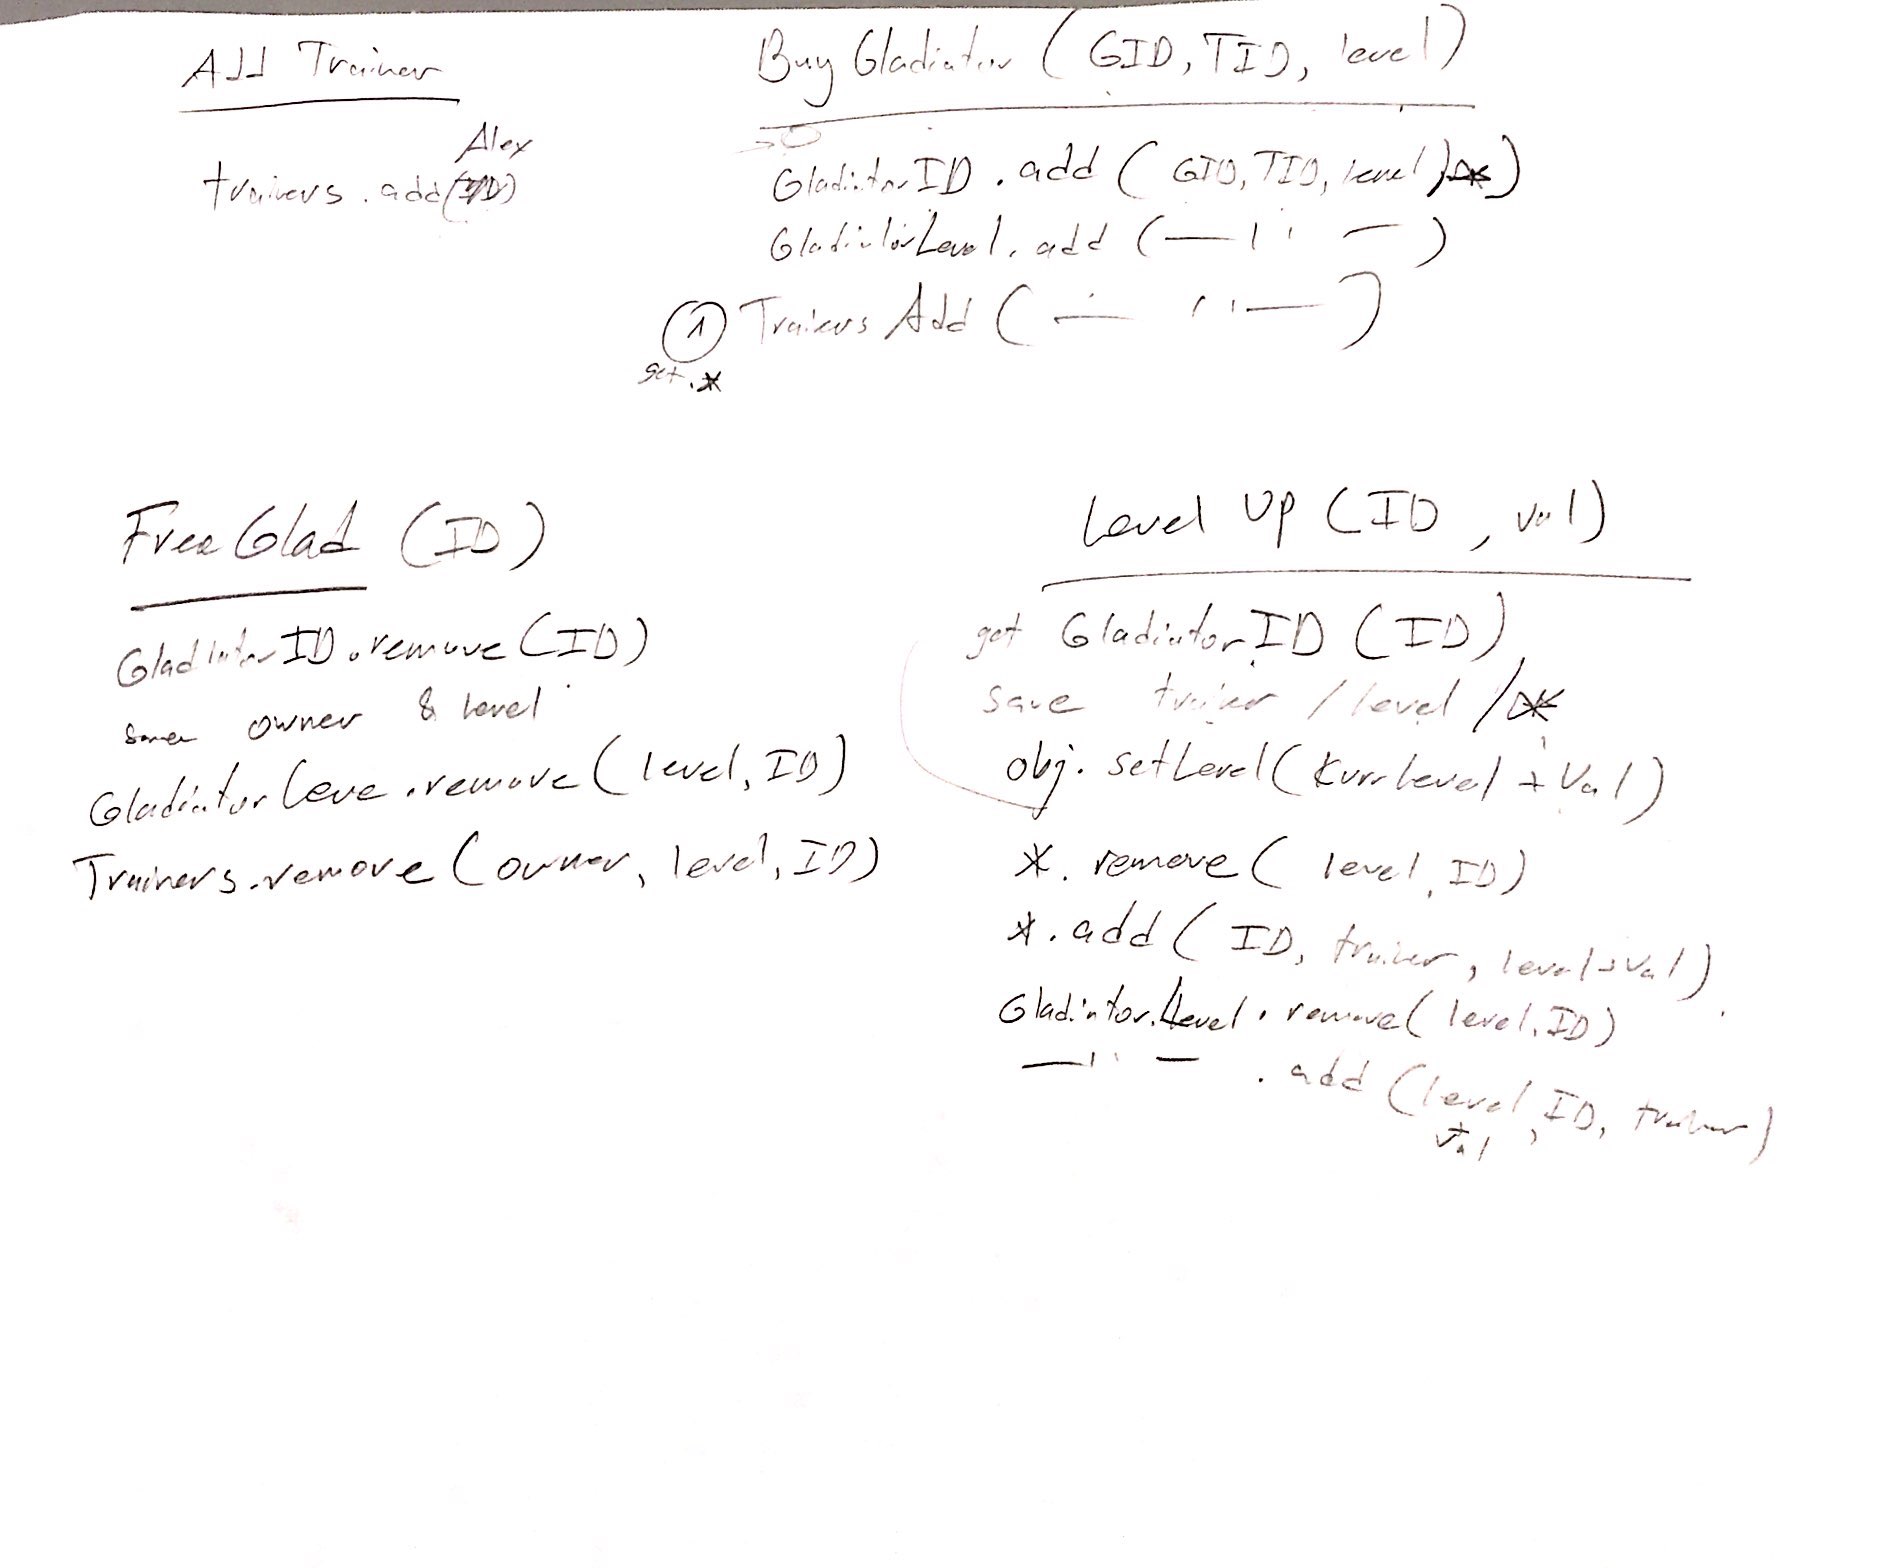 Add Trainer
Alex
trainers.add(ID)
Buy Gladiator (GID, TID, level)
GladiatorID.add (GID, TID, level, *)
GladiatorLevel.add (—11—)
① Trainers Add (—11—)
get.*
Free Glad (ID)
GladiatorID.remove (ID)
save owner & level
Gladiator Leve.remove (level, ID)
Trainers.remove (owner, level, ID)
Level Up (ID, val)
get GladiatorID (ID)
save trainer / level / *
obj. setLevel (kurrlevel + Val)
*. remove (level, ID)
*. add (ID, trainer, level+val)
Gladiator.Level.remove (level, ID)
—11— .add (level, ID, trainer)
+ val